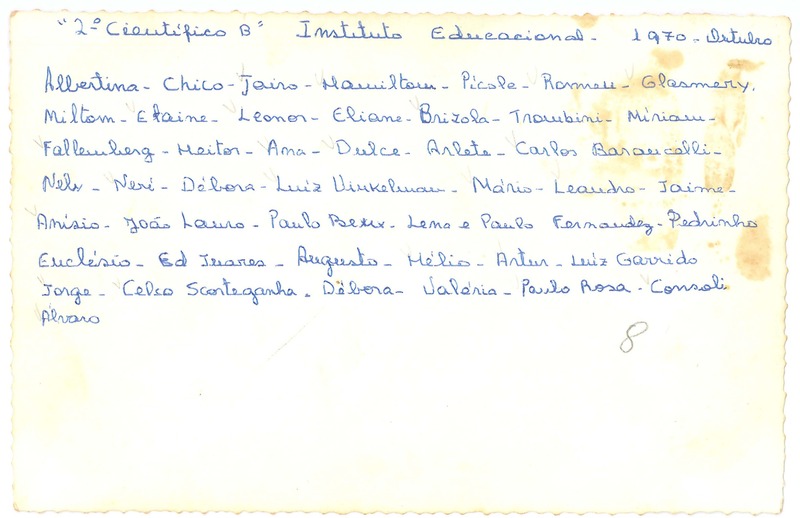 "2º Científico B" Instituto Educacional - 1970 - Outubro
Albertina - Chico - Jairo - Hamiltom - Picole - Romeu - Glasmery.
Miltom - Elaine - Leonor - Eliane - Brizola - Trombini - Míriam -
Fallemberg - Heitor - Ana - Dulce - Arlete - Carlos Baroncelli -
Nels - Neri - Débora - Luíz Vinkelman - Mário - Leandro - Jaime -
Anísio - João Lauro - Paulo Beux - Lene e Paulo Fernandez - Pedrinho
Euclésio - Ed Juares - Augusto - Hélio - Artur - Luíz Garrido
Jorge - Celso Scorteganha - Débora - Valéria - Paulo Rosa - Consoli
Álvaro
8